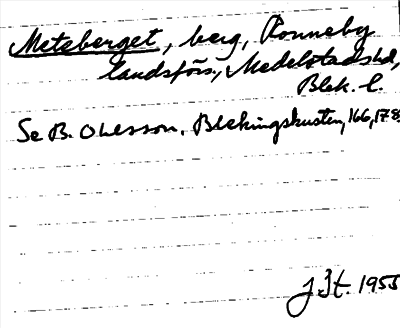 Meteberget, berg, Ronneby
landsförs., Medelstadshd,
Blek. l.
Se B. Ohlsson, Blekingskusten, 166, 178
J.St. 1955